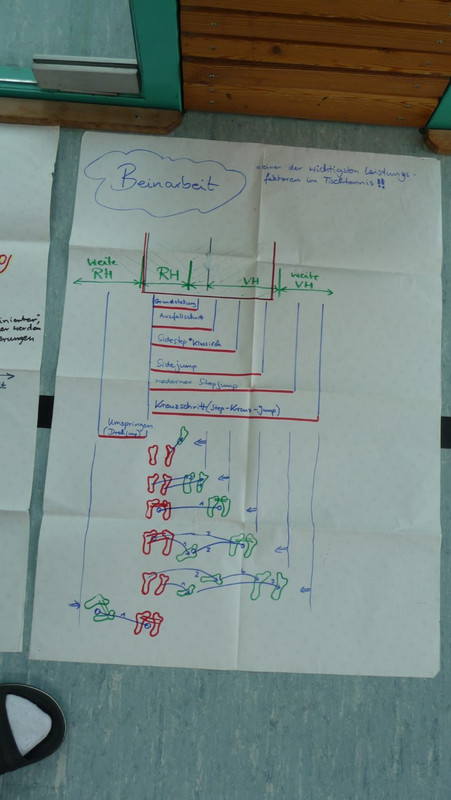 Beinarbeit
einer der wichtigsten Leistungs-
faktoren im Tischtennis!!
weite
RH
RH
VH
weite
VH
Grundstellung
Ausfallschritt
Sidestep
Sidejump
moderner Stepjump
Kreuzschritt (Step-Kreuz-Jump)
Umspringen